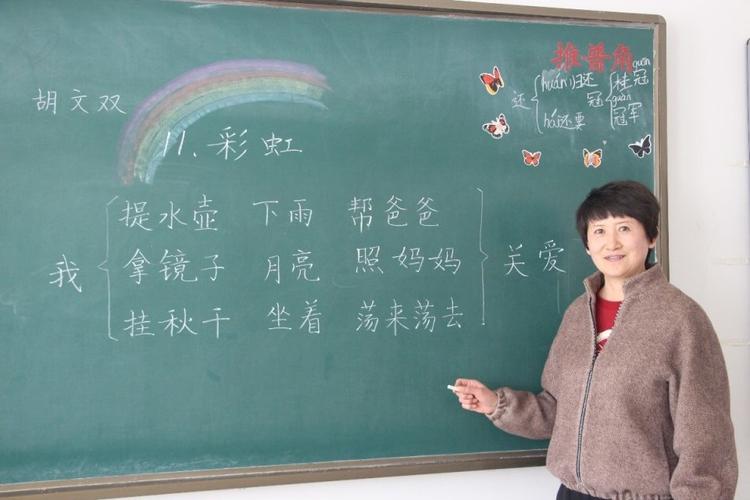 推普角
还 huán 归还 hái 还要
冠 guān 桂冠 guàn 冠军
胡文双
11.彩虹
我
提水壶 下雨 帮爸爸
拿镜子 月亮 照妈妈
挂秋千 坐着 荡来荡去
关爱